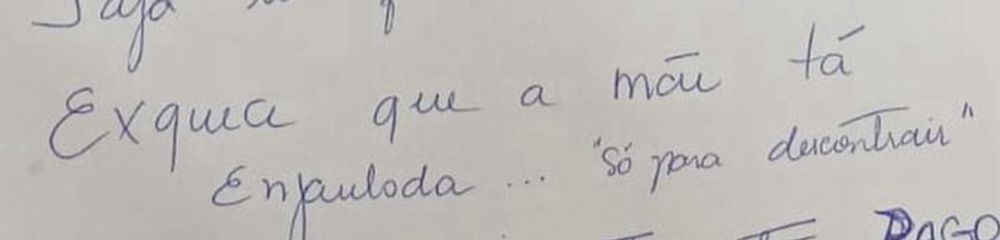 Exquia que a mãe tá
Enjauloda ... "só para descontrair"
PAGO